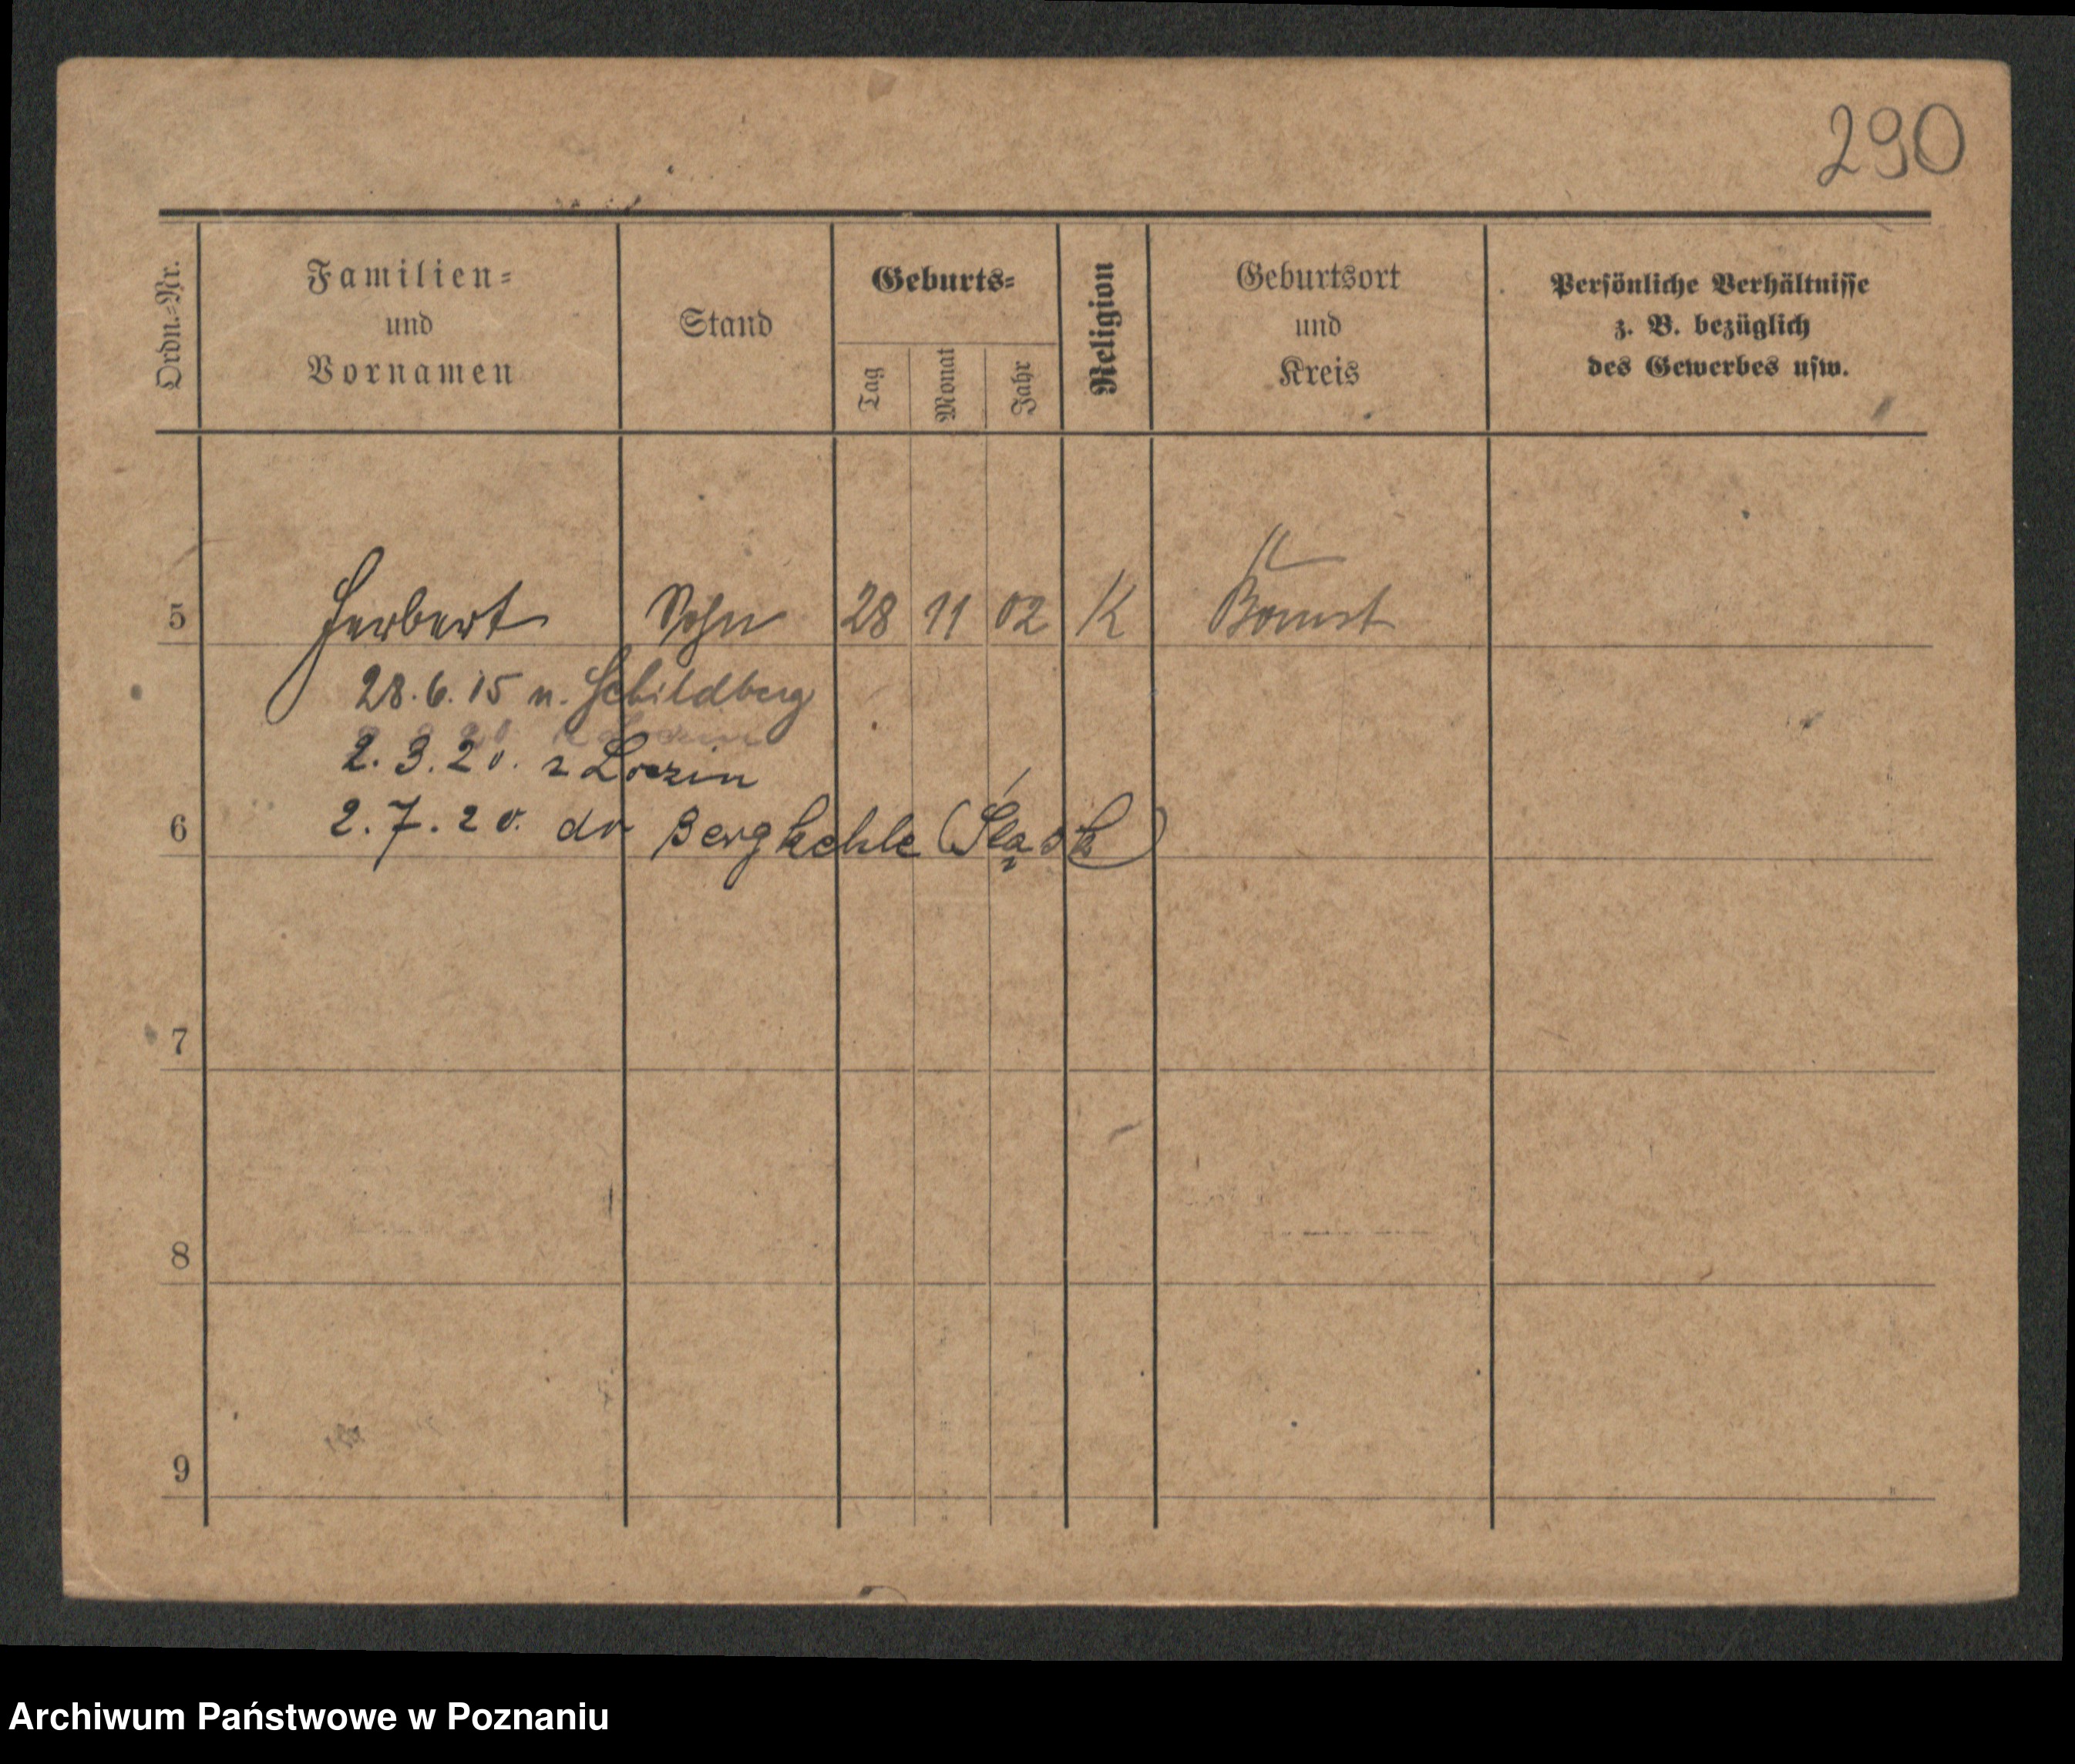 290
Ordn.-Nr.
Familien-
und
Vornamen
Stand
Geburts-
Tag
Monat
Jahr
Religion
Geburtsort
und
Kreis
Persönliche Verhältnisse
z. B. bezüglich
des Gewerbes usw.
5 Herbert Sohn 28 11 02 K Bomst
28.6.15 n. Schildberg
2.3.20. z
6 2.7.20. do Bergkehle (Śląsk)
7
8
9
Archiwum Państwowe w Poznaniu